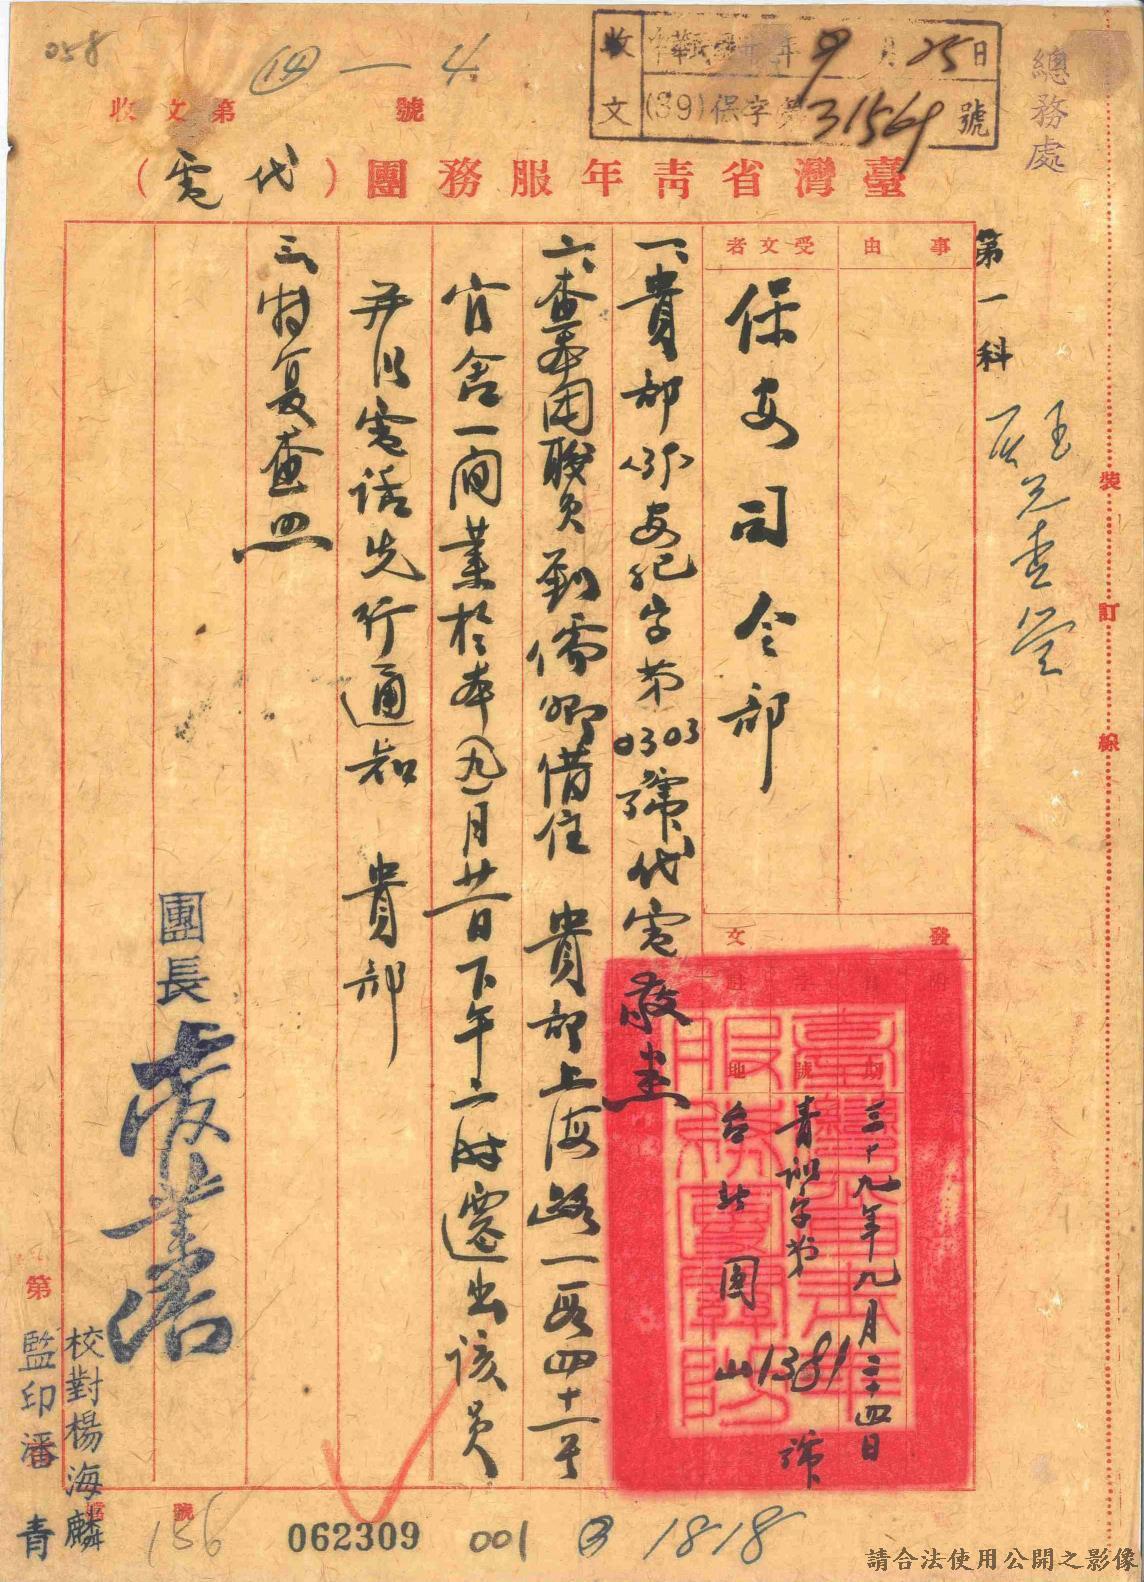 058
四—4
收文第　　號
收文
中華民國39年9月25日
(39)保字第31564號
總務處
臺灣省青年服務團（代電）
第一科
裝訂線
事由
受文者
保安司令部
發文
附件
日期
三十九年九月二十四日
字號
青訓字第1381號
駐地
台北圓山
臺灣省青年服務團鈐記
一、貴部(39)安記字第0303號代電敬悉
二、查本團職員劉儒卿借住　貴部上海路一段四十一號
官舍一間業於本(九)月廿一日下午二時遷出該員
并以電話先行通知　貴部
三、特复查照
團長
校對楊海麟
監印潘青
第　　號
檔
156
062309
001
1818
請合法使用公開之影像